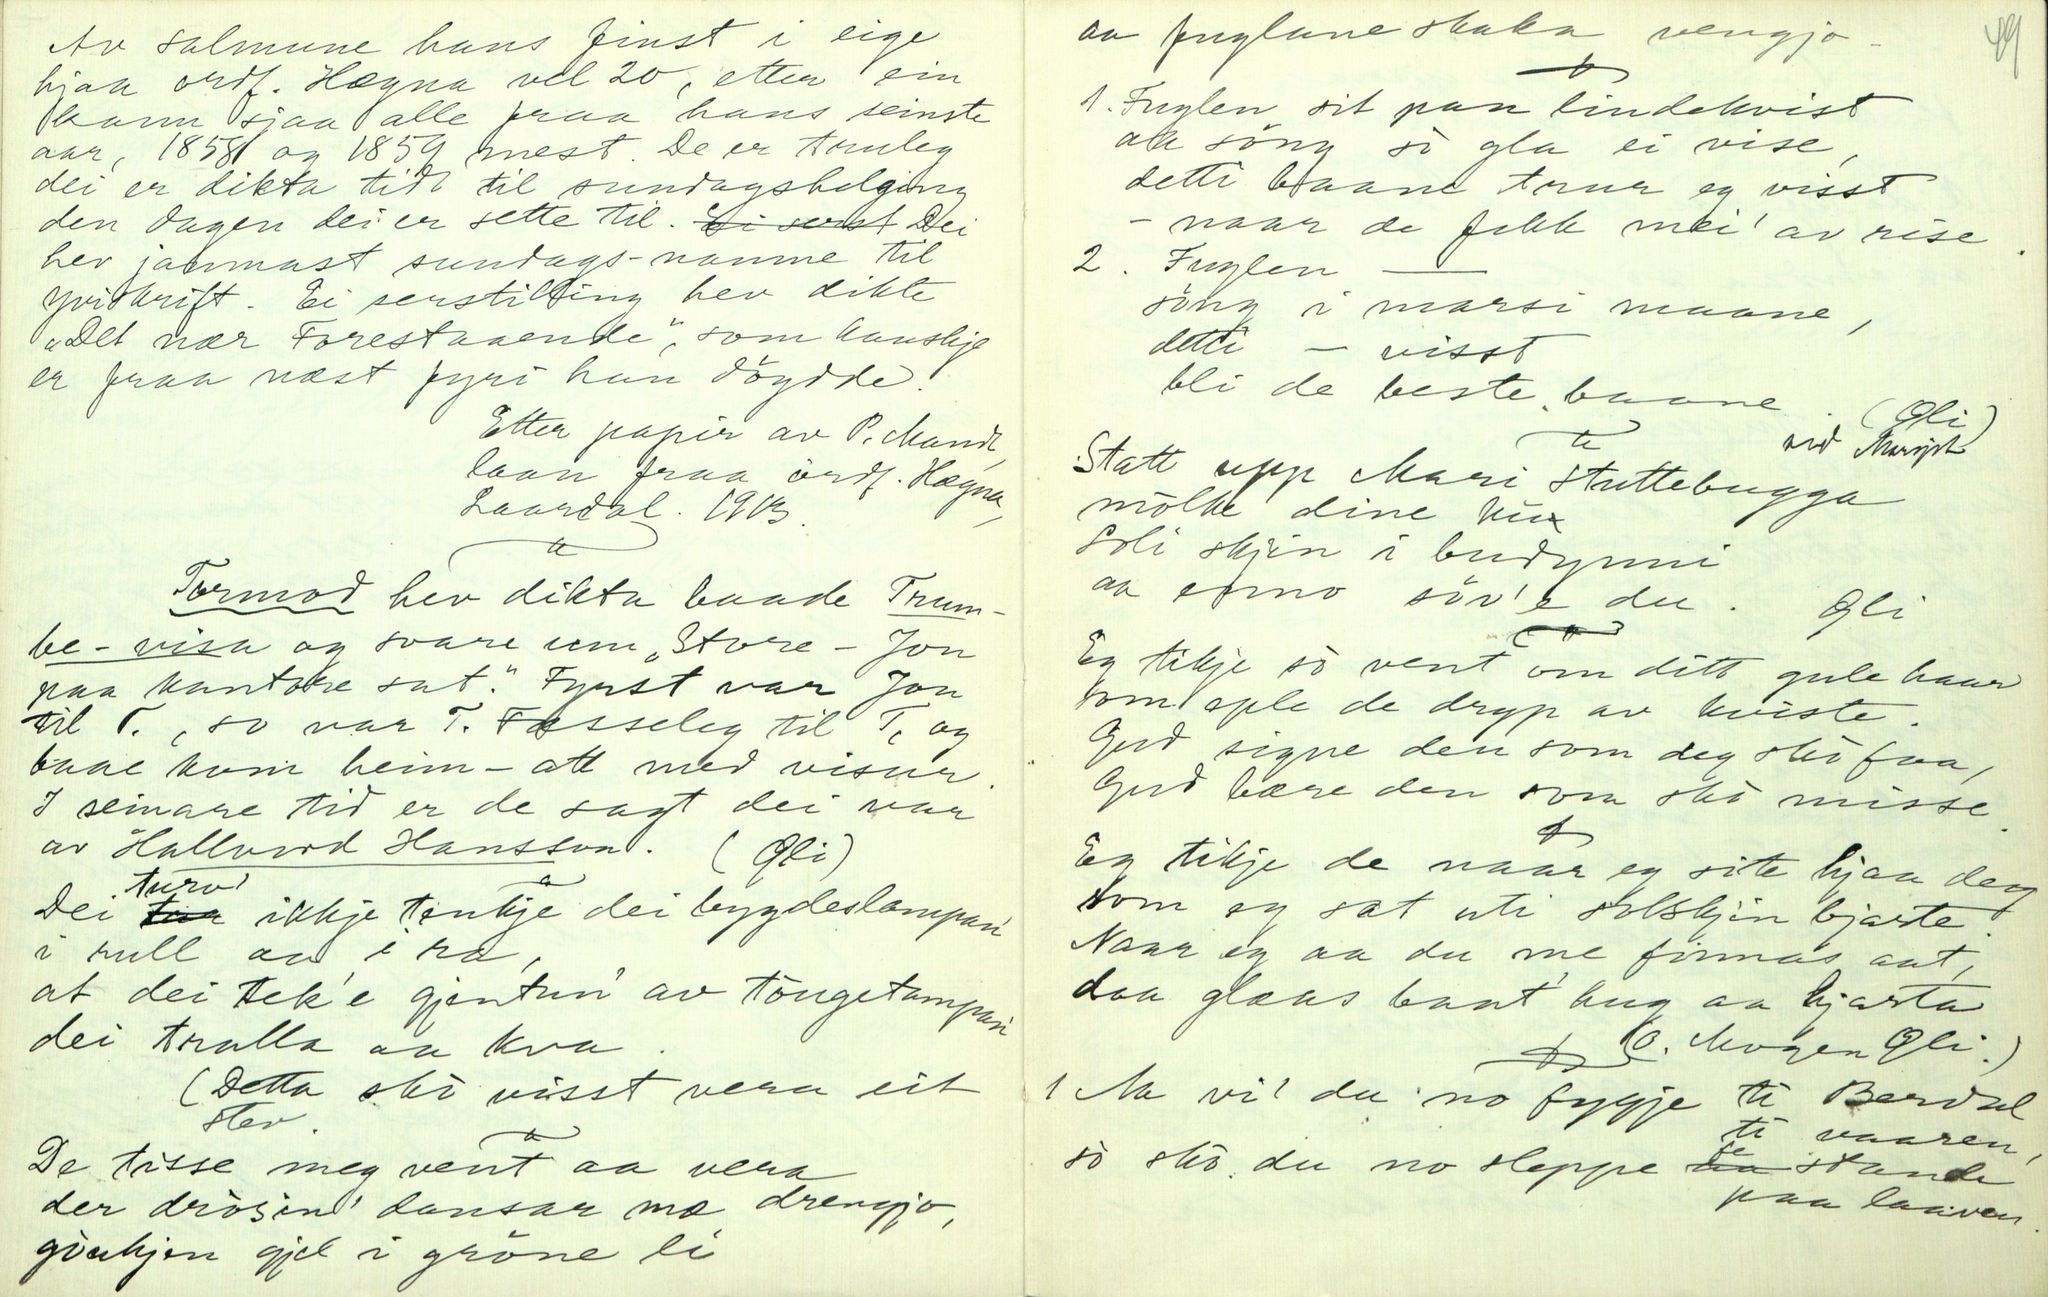 Av salmune hans finst i eige
hjaa ordf. Hægna vel 20, etter ein
kann sjaa alle fraa hans seinste
aar, 1858 og 1859 mest. De er truleg
dei er dikta tidt til sundagshelging
den dagen dei er sette til. Dei
hev jammast sundags-namne til
yviskrift. Ei serstilling hev dikte
"Det nær Forestaaende", som kanskje
er fraa næst fyri han döydde.
Etter papir av P. Mandt,
laan fraa ordf. Hægna,
Laardal. 1913.
Tormod hev dikta baade Trum-
be-visa og svare um "Store-Jon
paa kantore sat." Fyrst var Jon
til T., so var T. Fosseleg til T, og
baae kom heim-att med visur.
I seinare tid er de sagt dei var
av Hallvord Hansson. (Qli)
Dei turv' ikkje tenkje dei bygdeslampan'
i rull aa i ra,
at dei tek'e gjentun' av töngetampan'
dei tralla aa kva.
(Detta skò visst vera eit
stev.
De tisse meg vent aa vera
der dròsin' dansar mæ drengjo,
gòukjen gjel i gröne li
aa fuglane skaka vengjo.
49
1. Fuglen sit paa lindekvist
aa söng sò gla ei vise,
detti baane trur eg visst
- naar de fekk mei' av rise.
2. Fuglen —
söng i marsi maane,
detti — visst
bli de beste baane. (Qli)
Statt upp Mari Stuttebugga
mölke dine kui
Soli skjin i budynni
aa enno söv'e du. Qli
Eg tikje sò vent om ditt gule haar
som eple de dryp av kviste.
Gud signe den som deg skò faa,
Gud bære den som skò misse.
Eg tikje de naar eg site hjaa deg
som eg sat uti solskjin bjarte.
Naar eg aa du me finnas aat,
daa glæas baat' hug aa hjarta
(O. Mogen Qli.)
1 Aa vi' du no fygje ti Berdal
ti vaaren,
sò skò du no sleppe te stande
paa laaven.